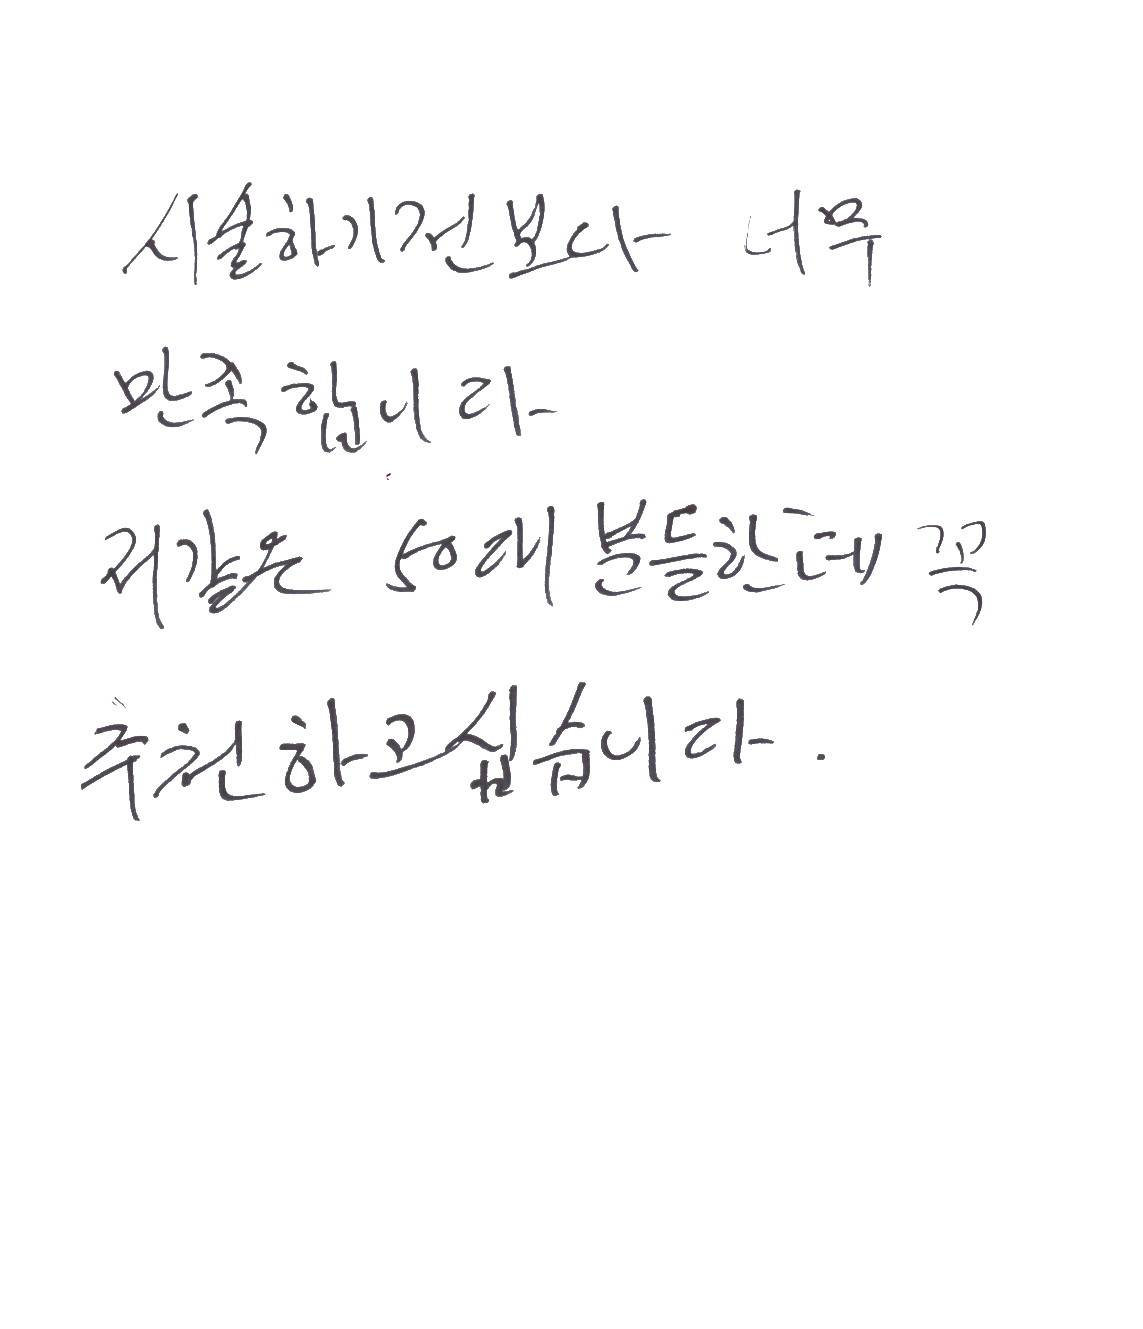 시술하기전보다 너무
만족합니다
저같은 50대 분들한테 꼭
추천하고십습니다.